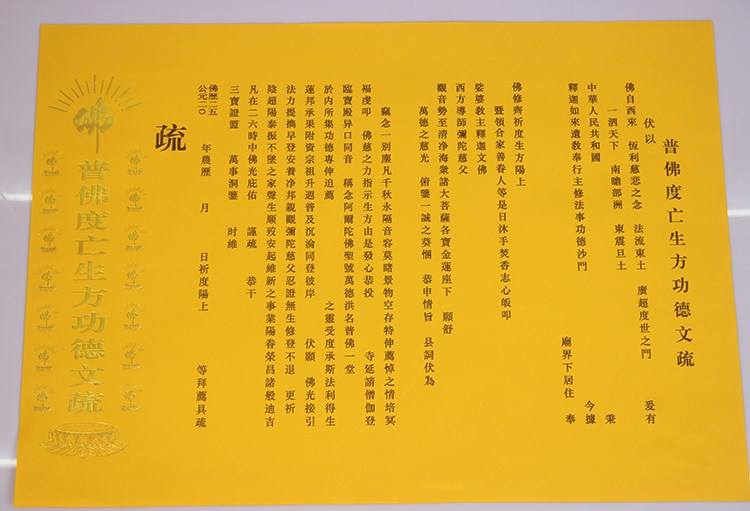 普佛度亡生方功德文疏
伏以
佛自西來 恆利慈悲之念 法流東土 廣超度世之門 爰有
一泗天下 南瞻部洲 東震旦土 秉
中華人民共和國 今據
釋迦如來遺教奉行主修法事功德沙門
廟界下居住 奉
佛修齊祈度生方陽上
暨領合家善眷人等是日沐手焚香志心皈叩
娑婆教主釋迦文佛
西方導師彌陀慈父
觀音勢至清净海衆諸大菩薩各寶金蓮座下 願舒
萬德之慈光 俯鑒一誠之葵悃 恭申情旨 具詞伏為
竊念一別塵凡千秋永隔音容莫睹景物空存特伸薦悼之情培冥
福虔叩 佛慈之力指示生方由是發心恭投 寺延請僧伽登
臨寶殿异口同音 稱念阿爾陀佛聖號萬德洪名普佛一堂
於內所集功德專伸追薦 之靈受度承斯法利得生
蓮邦承果附資宗祖升遐普及沉淪同登彼岸 伏願 佛光接引
法力提携早登安養净邦親觀彌陀慈父忍證無生修登不退 更祈
陰超陽泰振不墜之家聲生順殁安起維新之事業陽眷榮昌諸般迪吉
凡在二六時中佛光庇佑 謹疏 恭干
三寶證盟 萬事洞鑒 时維
佛歷二五
公元二0 年農歷 月 日祈度陽上 等拜薦具疏
疏
佛
普佛度亡生方功德文疏